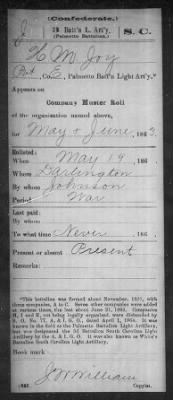 (Confederate.)
J 3 Batt'n L. Art'y. S. C.
(Palmetto Battalion)
H M Joy
Pvt, Co. E, Palmetto Batt'n Light Art'y.*
Appears on
Company Muster Roll
of the organization named above,
for May & June, 1862.
Enlisted:
When May 19, 186
Where Darlington
By whom Johnson
Period War
Last paid:
By whom
To what time Never, 186
Present or absent Present
Remarks:
*This battalion was formed about November, 1861, with
three companies, A to C. Seven other companies were added at
various times, the last about June 21, 1862. Companies
H, I and K, not being legally organized, were disbanded by
S. O. No. 77, A. & I. G. O., dated April 1, 1864. It was
known in the field as the Palmetto Battalion Light Artillery,
but was designated the 3d Battalion South Carolina Light
Artillery by the A. & I. G. O. It was also known as White's
Battalion South Carolina Light Artillery.
Book mark:
J W William
(642) Copyist.